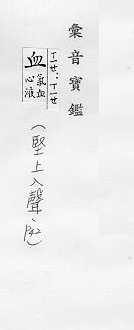 彙音寶鑑
ㄒㄧㄝˊ;ㄒㄧㄝ
血
氣血
心液
(堅上入聲、P42)